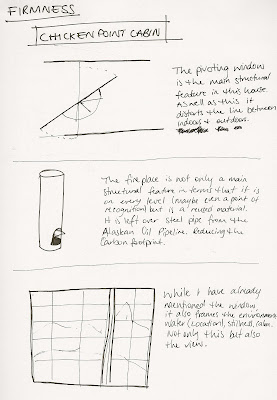 FIRMNESS
CHICKEN POINT CABIN
The pivoting window
is the main structural
feature in this house.
As well as this it
distorts the line between
indoors & outdoors.
The fireplace is not only a main
structural feature in terms that it is
on every level (maybe even a point of
recognition) but is a reused material.
It is left over steel pipe from the
Alaskan Oil Pipeline. Reducing the
Carbon footprint.
While I have already
mentioned the window
it also frames the environment
water (location), stillness, calm.
Not only this but also
the view.